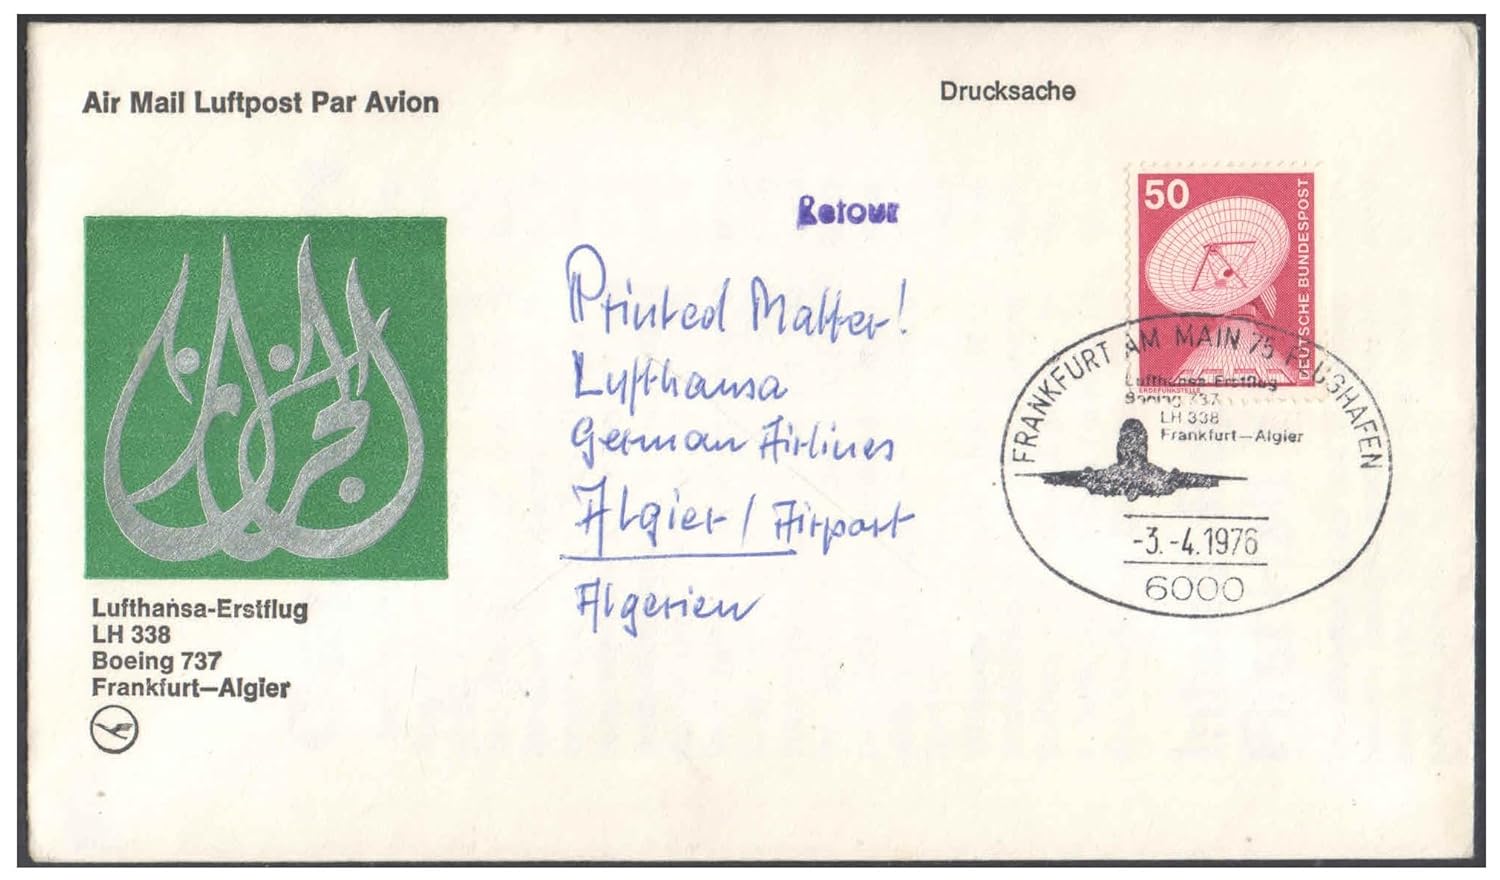 Air Mail Luftpost Par Avion
Drucksache
Retour
50
DEUTSCHE BUNDESPOST
ERDEFUNKSTELLE
Printed Matter!
Lufthansa
German Airlines
Algier / Airport
Algerien
FRANKFURT AM MAIN 75 FLUGHAFEN
Lufthansa-Erstflug
Boeing 737
LH 338
Frankfurt–Algier
-3.-4.1976
6000
الجزائر
Lufthansa-Erstflug
LH 338
Boeing 737
Frankfurt–Algier